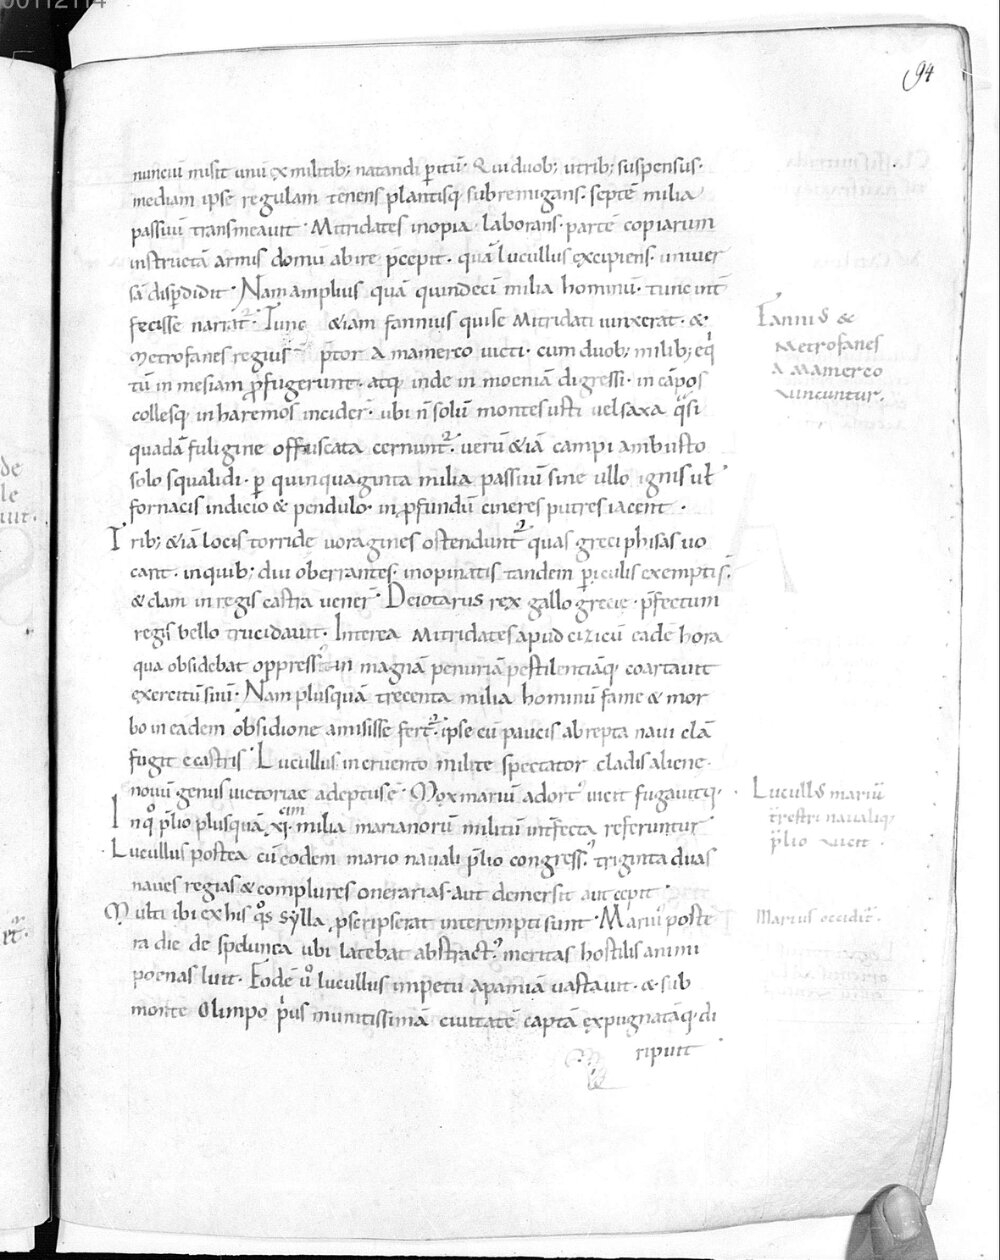 00112114
94
nunciu misit unu ex militib; natandi ꝑitū. Qui duob; utrib; suspensus.
mediam ipse regulam tenens plantisq; subremigans. septē milia
passuū transmeavit. Mitridates inopia laborans. partē copiarum
instructā armis domū abire p̄cepit. quā lucullus excipiens. univer
sā disꝑdidit. Nam amplius quā quindecī milia hominū. tunc int̄
fecisse narrat̄. Tunc &iam fannius qui se Mitridati iunxerat. &
Metrofanes regius p̄tor A mamerco victi. cum duob; milib; eq̄
tū in mesiam ꝓfugerunt. atq; inde in moeniā digressi. in cāpos
collesq; inharemos incider̄. ubi ñ solū montes usti vel saxa q̊si
quadā fuligine offuscata cernunt̄. verū &iā campi ambusto
solo squalidi. ꝑ quinquaginta milia passuū sine ullo ignis uł
fornacis indicio & pendulo. in ꝓfundū cineres putres iacent.
Trib; &iā locis torride voragines ostendunt̄ quas greci phisas vo
cant. in quib; diu oberrantes. inopinatis tandem ꝑiculis exemptis.
& clam in regis castra vener̄. Deiotarus rex gallogrecie. p̄fectum
regis bello trucidavit. Interea Mitridates apud cizicū eadē hora
qua obsidebat oppress; in magnā penuriā pestilentiāq; coartavit
exercitū suū. Nam plusquā trecenta milia hominū fame & mor
bo in eadem obsidione amisisse fert̄. ipse cū paucis abrepta navi clā
fugit e castris. Lucullus incruento milite spectator cladis aliene.
novū genus victoriae adeptus ē. Mox mariū adort; vicit fugavitq;.
In q̊ p̄lio plusquā .xi.cim milia marianorū militū int̄fecta referuntur
Lucullus postea cū eodem mario navali p̄lio congress; triginta duas
naves regias & complures onerarias. aut demersit aut cepit.
Multi ibi ex his q̊s Sylla ꝓscripserat interempti sunt. Mariū poste
ra die de spelunca ubi latebat abstract; meritas hostilis animi
poenas luit. Eodē ů lucullus impetu Apamiā vastavit. & sub
monte Olimpo p̄us munitissimā civitatē captā expugnatāq; di
ripuit
Fannius &
Metrofanes
A Mamerco
vincuntur.
Lucullus mariū
t̄restri navaliq;
p̄lio vicit.
Marius occidit̄.